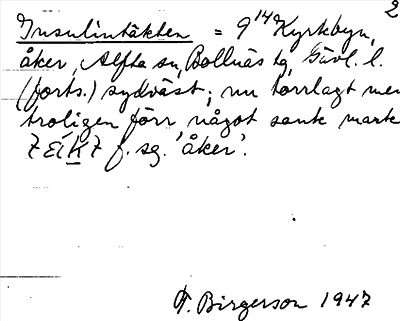 2
Insulintäkten = 9¹⁴ Kyrkbyn,
åker, Alfta sn, Bollnäs tg, Gävl. l.
(forts.) sydväst; nu torrlagt men
troligen förr något sank mark
f. sg. 'åker'.
F. Birgerson 1947